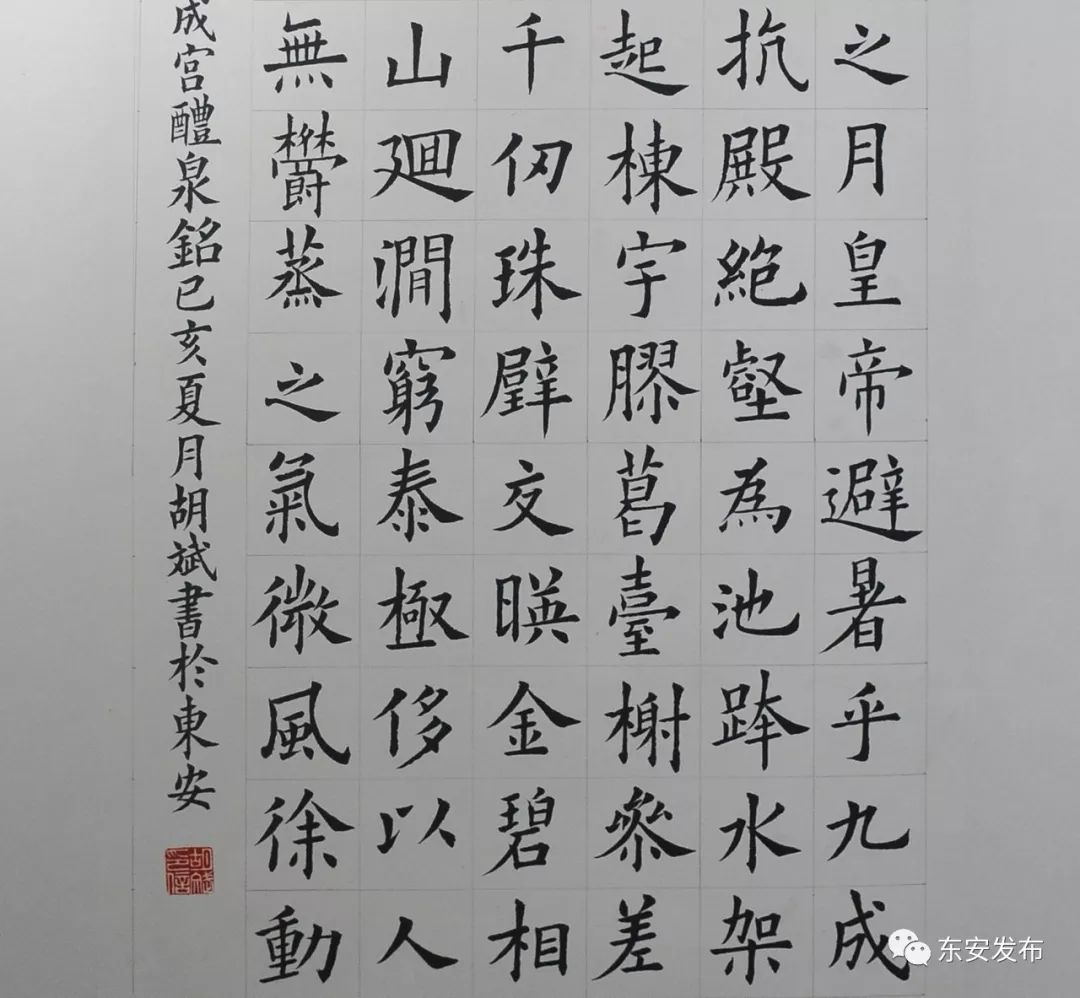 之月皇帝避暑乎九成
抗殿絶壑為池跨水架
起棟宇膠葛臺榭叅差
千仞珠壁交暎金碧相
山廻澗窮泰極侈以人
無欝蒸之氣微風徐動
成宫醴泉銘己亥夏月胡斌書於東安
胡斌印信
东安发布